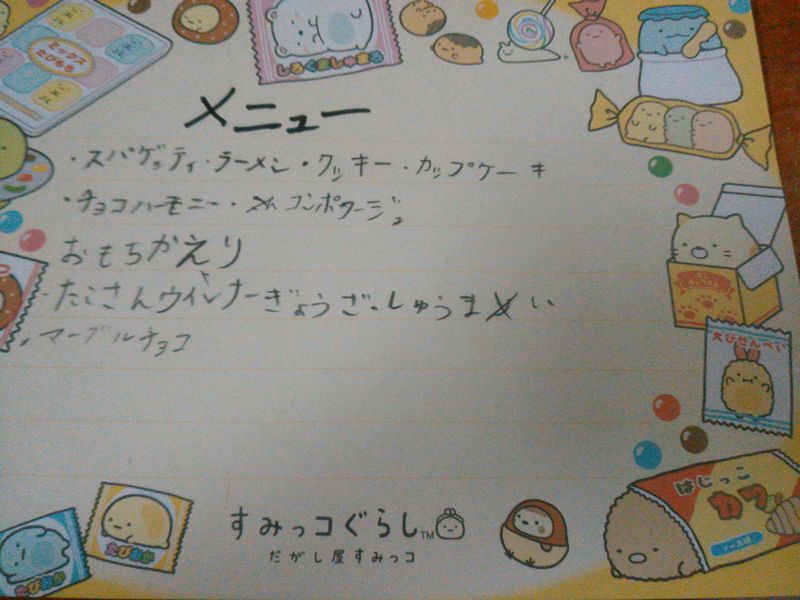 ミックス
たぴもち
しろくましゅまろ
メニュー
・スパゲッティ・ラーメン・クッキー・カップケーキ
・チョコハーモニー・コンポタージュ
おもちかえり
・たこさんウインナーぎょうざ・しゅうまい
・マーブルチョコ
えびせんべい
はじっこ
カツ
ソース味
たぴおか
たぴおか
すみっコぐらしTM
だがし屋すみっコ